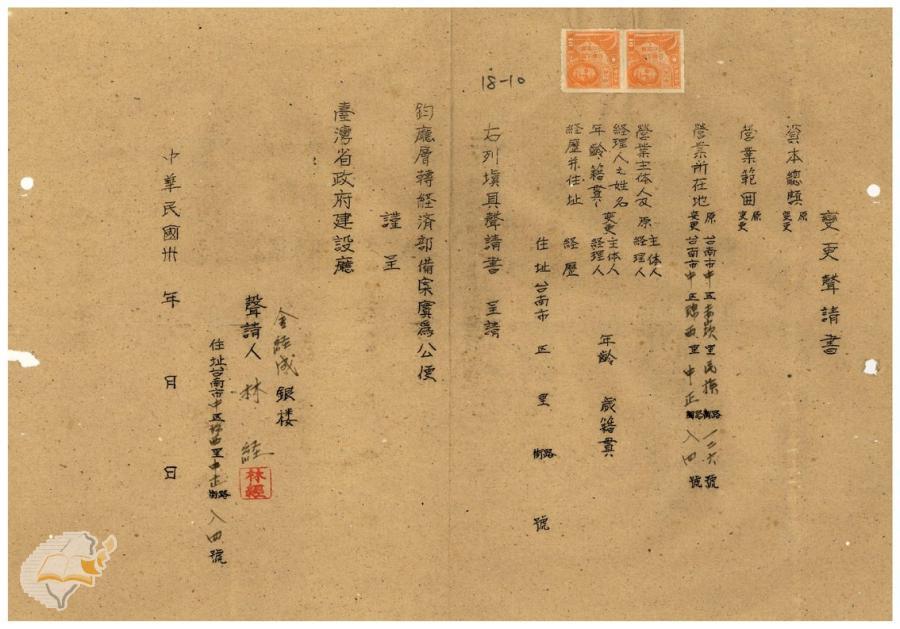 變更聲請書
資本總額 原 變更
營業範囲 原 變更
營業所在地 原 台南市中区赤崁里民族街路一二六號
變更 台南市中区 西里中正街路八四號
營業主体人及 原 主体人 經理人
經理人之姓名
年齡籍貫 變更 主体人 經理人 年齡 歲籍貫
經歷并住址 經歷
住址台南市 区 里 街路 號
右列塡具聲請書 呈請
鈞廳層轉經済部備案實爲公便
謹呈
臺灣省政府建設廳
金經成銀楼
聲請人 林經
林經
住址台南市中区 西里中正街路八四號
中華民國卅 年 月 日
18-10